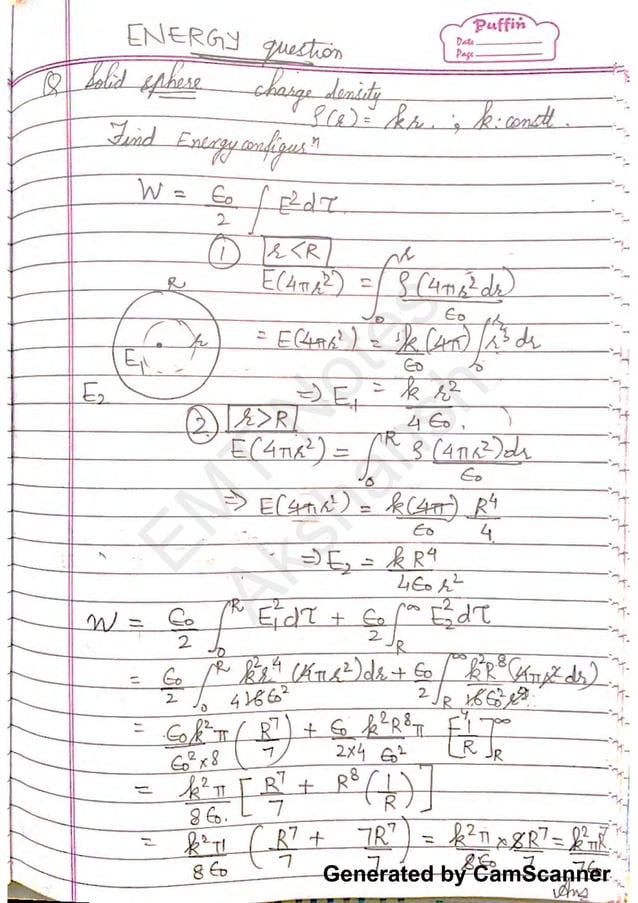 ENERGY question
Puffin
Date
Page
Q Solid sphere charge density
ρ(r) = kr. ; k: constt.
Find Energy configurⁿ
W = ε₀/2 ∫ E²dτ
① r<R
E(4πr²) = ∫₀^r ρ(4πr²dr)/ε₀
R
r
E₁
E₂
= E(4πr²) = k(4π)/ε₀ ∫₀^r r³dr
⇒ E₁ = k r²/4ε₀.
② r>R
E(4πr²) = ∫₀^R ρ(4πr²)dr/ε₀
⇒ E(4πr²) = k(4π)/ε₀ R⁴/4
⇒ E₂ = kR⁴/4ε₀r²
W = ε₀/2 ∫₀^R E₁²dτ + ε₀/2 ∫_R^∞ E₂²dτ
= ε₀/2 ∫₀^R k²r⁴/16ε₀² (4πr²)dr + ε₀/2 ∫_R^∞ k²R⁸(4πr²dr)/16ε₀²r⁴
= ε₀k²π/ε₀²×8 (R⁷/7) + ε₀/2×4 k²R⁸π/ε₀² [-1/R]_R^∞
= k²π/8ε₀. [R⁷/7 + R⁸(1/R)]
= k²π/8ε₀ (R⁷/7 + 7R⁷/7) = k²π/8ε₀ × 8R⁷/7 = k²πR⁷/7ε₀
Ans
EMT Notes
Akshansh
Generated by CamScanner